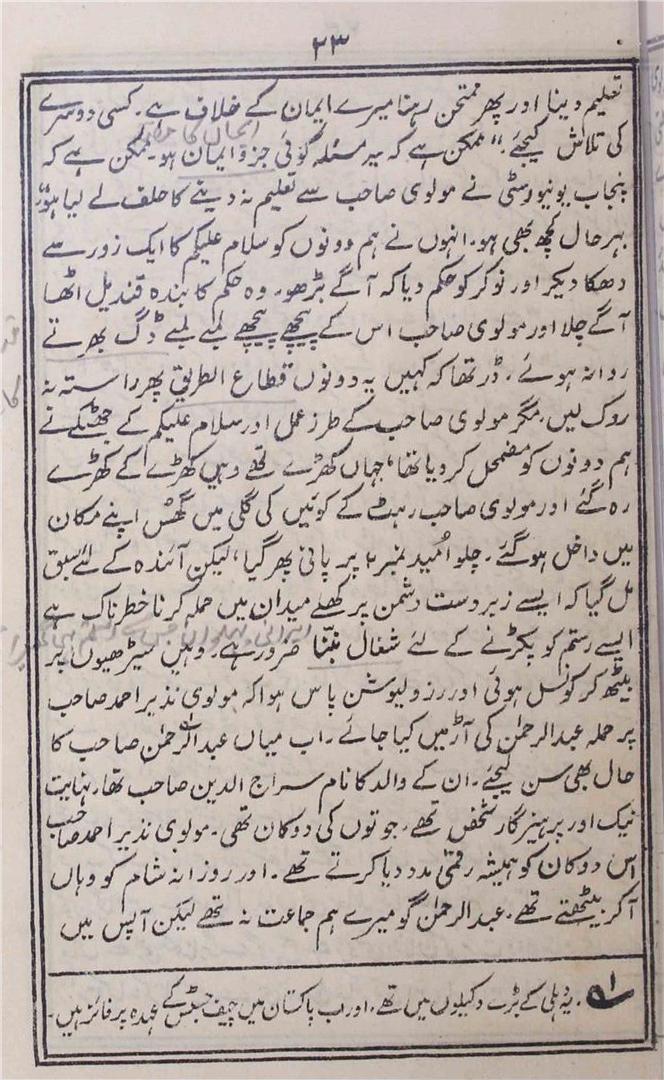 ۲۳
تعلیم دینا اور پھر ممتحن رہنا میرے ایمان کے خلاف ہے۔ کسی دوسرے
کی تلاش کیجئے۔" ممکن ہے کہ یہ مسئلہ کوئی جزوِ ایمان ہو۔ ممکن ہے کہ
پنجاب یونیورسٹی نے مولوی صاحب سے تعلیم نہ دینے کا حلف لے لیا ہو،
بہر حال کچھ بھی ہو۔ انہوں نے ہم دونوں کو سلام علیکم کا ایک زور سے
دھکا دیکر اور نوکر کو حکم دیا کہ آگے بڑھو۔ وہ حکم کا بندہ قندیل اٹھا
آگے چلا اور مولوی صاحب اس کے پیچھے پیچھے لمبے لمبے ڈگ بھرتے
روانہ ہوئے۔ ڈر تھا کہ کہیں یہ دونوں قطاع الطریق پھر راستہ نہ
روک لیں۔ مگر مولوی صاحب کے طرز عمل اور سلام علیکم کے جھٹکے نے
ہم دونوں کو مضمحل کر دیا تھا، جہاں کھڑے تھے وہیں کھڑے کے کھڑے
رہ گئے اور مولوی صاحب رہٹ کے کوئیں کی گلی میں گھس اپنے مکان
میں داخل ہو گئے۔ چلو اُمید نمبر ۲ پر پانی پھر گیا، لیکن آئندہ کے لئے سبق
مل گیا کہ ایسے زبردست دشمن پر کھلے میدان میں حملہ کرنا خطرناک ہے
ایسے رستم کو پکڑنے کے لئے شغال بننا ضرور ہے۔ وہیں سیڑھیوں پر
بیٹھ کر کونسل ہوئی اور رزولیوشن پاس ہوا کہ مولوی نذیر احمد صاحب
پر حملہ عبدالرحمٰن کی آڑ میں کیا جائے۔ اب میاں عبدالرحمٰن صاحب کا
حال بھی سن لیجئے۔ ان کے والد کا نام سراج الدین صاحب تھا، نہایت
نیک اور پرہیزگار شخص تھے، جوتوں کی دوکان تھی۔ مولوی نذیر احمد صاحب
اس دوکان کو ہمیشہ رقمی مدد دیا کرتے تھے۔ اور روزانہ شام کو وہاں
آکر بیٹھتے تھے۔ عبدالرحمٰن گو میرے ہم جماعت نہ تھے لیکن آپس میں
۱؎ یہ دہلی کے بڑے وکیلوں میں تھے، اور اب پاکستان میں چیف جسٹس کے عہدہ پر فائز ہیں۔